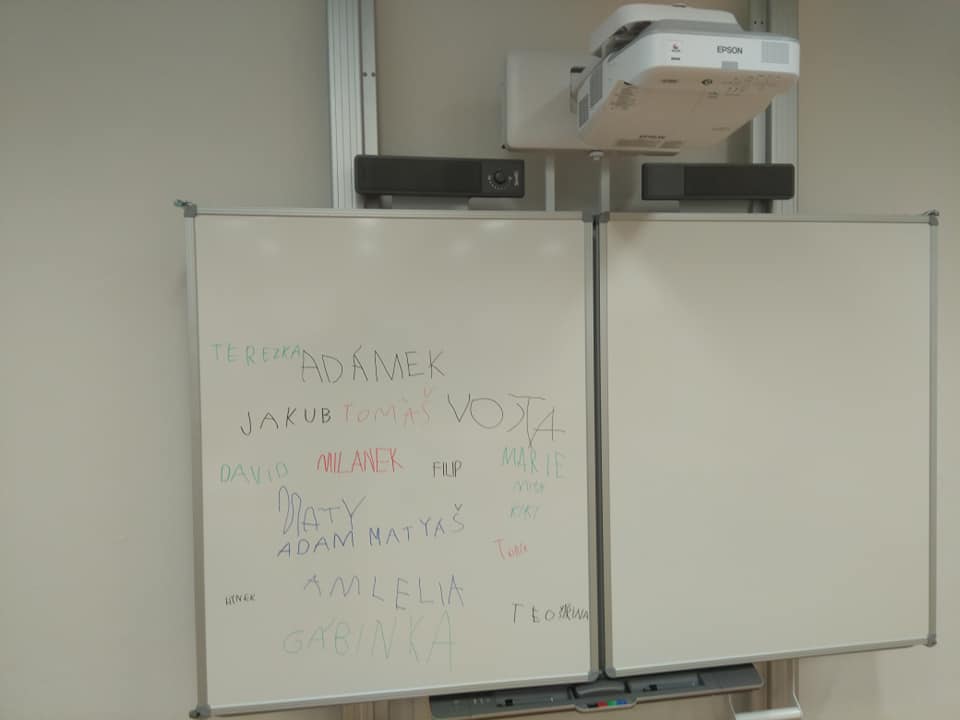 EPSON
TEREZKA ADÁMEK
JAKUB TOMÁŠ VOJTA
DAVID MILANEK FILIP MARIE
MATY KIKI
ADAM MATYÁŠ
AMLELIA
HYNEK
GÁBINKA